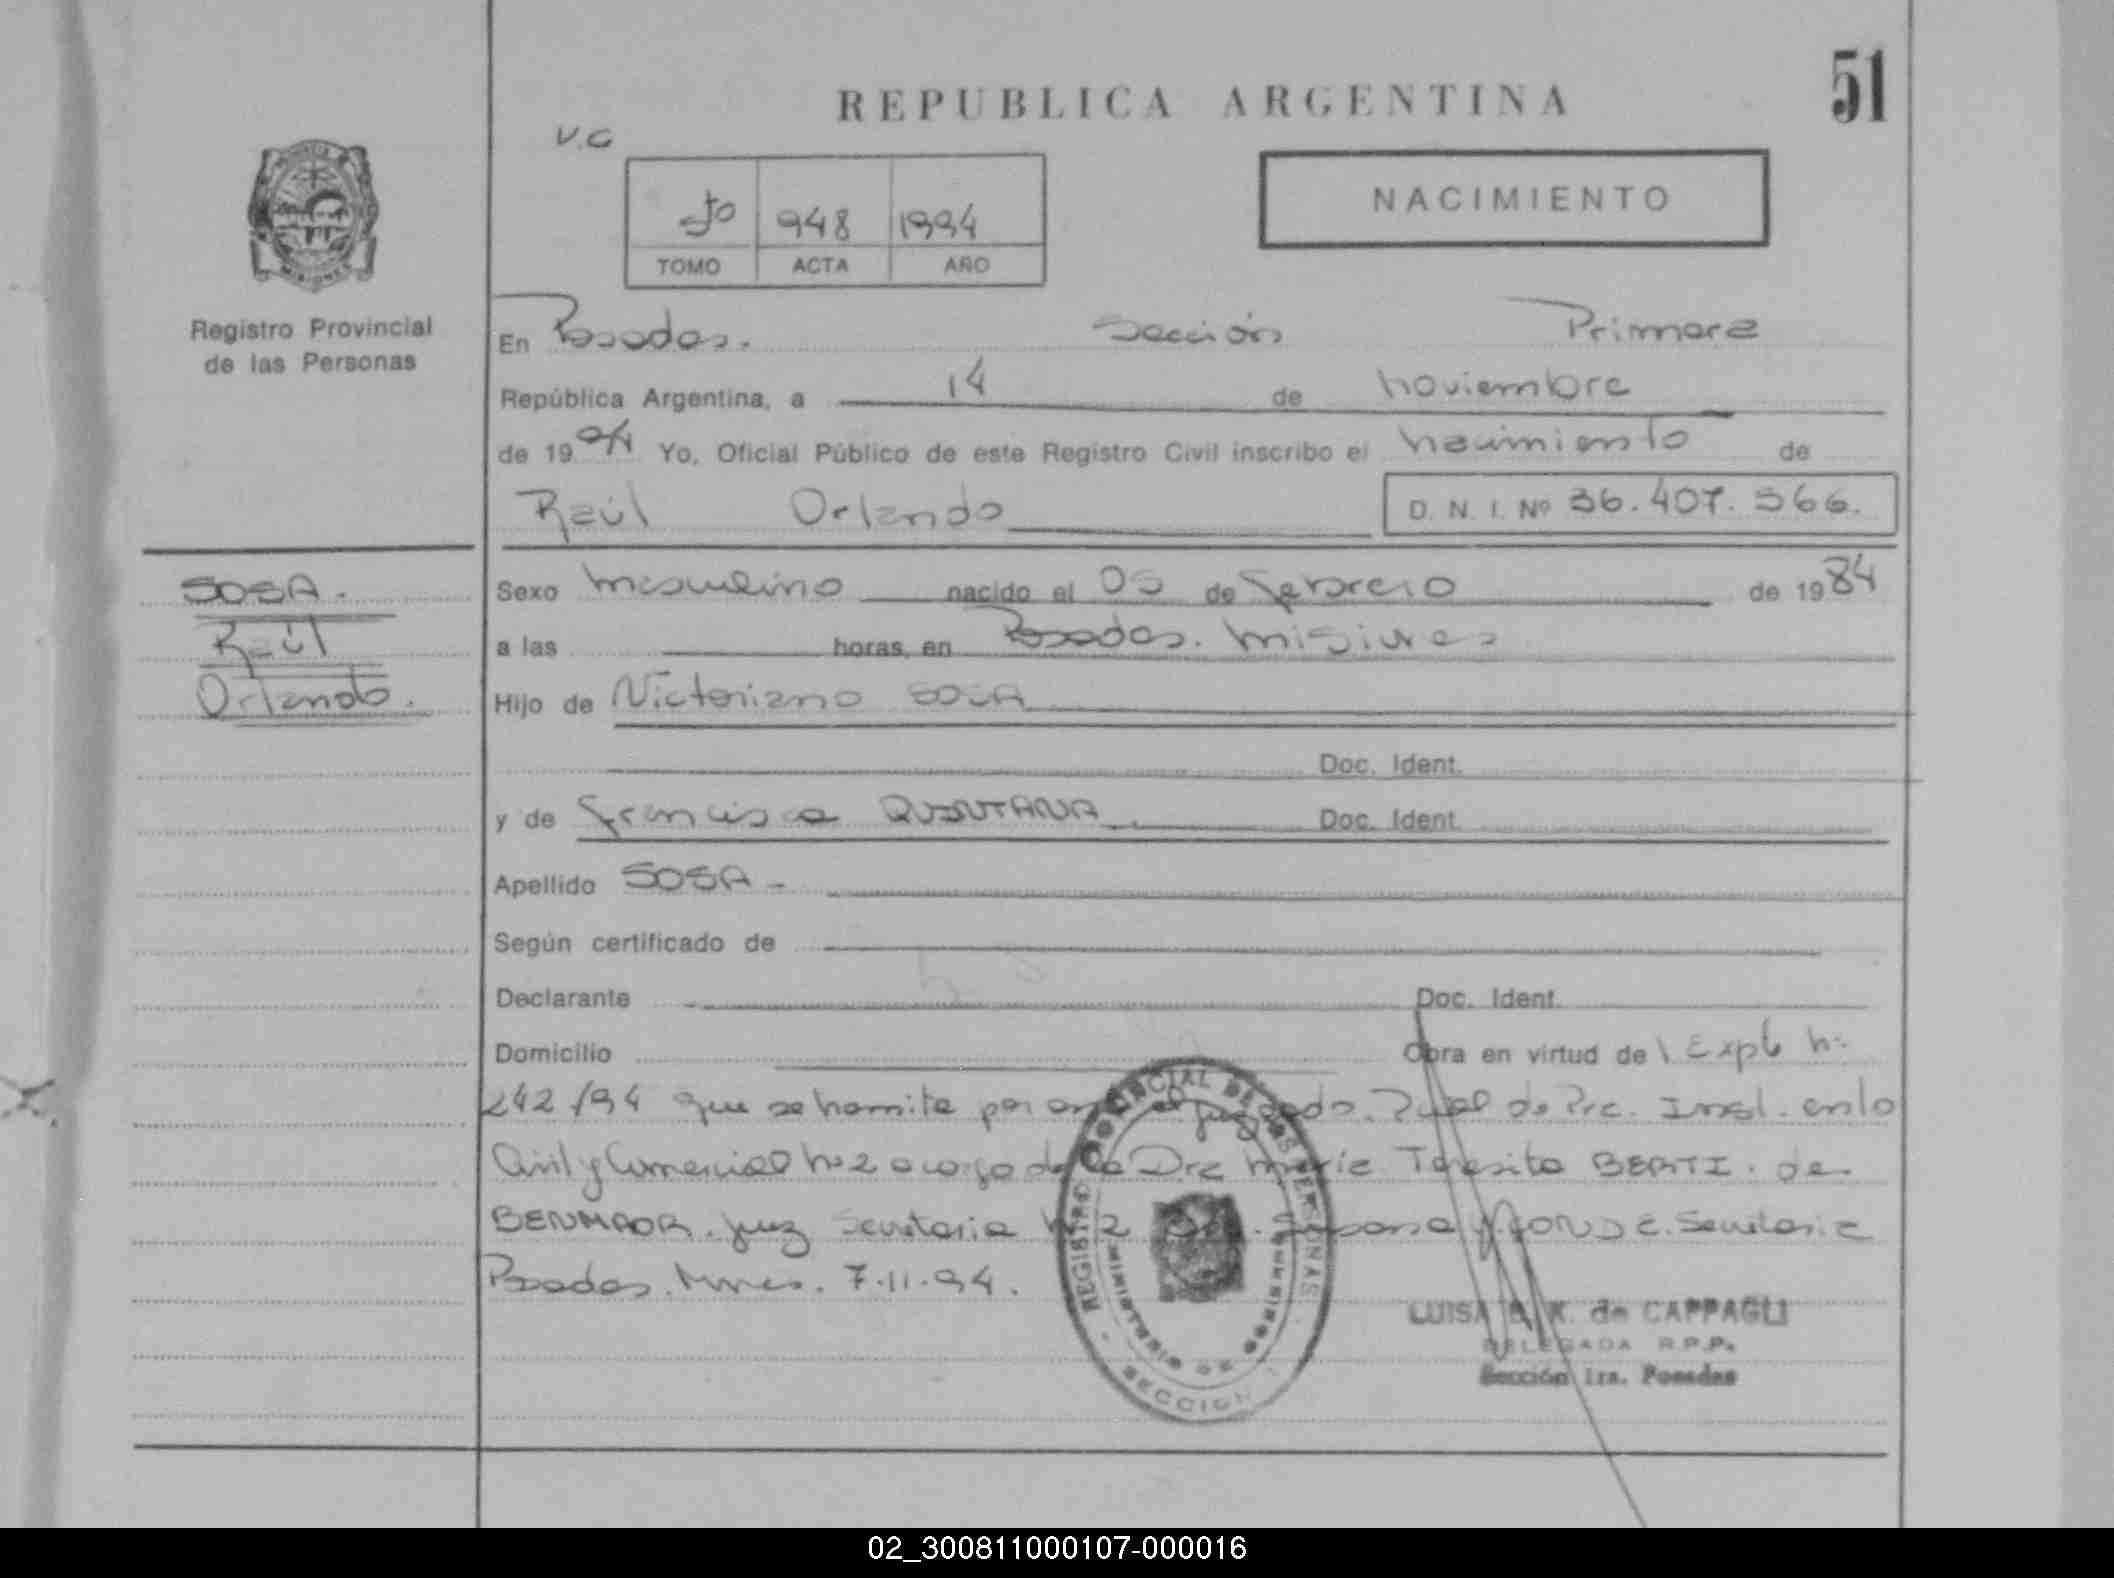 REPUBLICA ARGENTINA
51
V.C
5to 948 1994
TOMO ACTA AÑO
NACIMIENTO
PROVINCIA DE MISIONES
Registro Provincial
de las Personas
En Posadas. Sección Primera
República Argentina, a 14 de noviembre
de 1994 Yo, Oficial Público de este Registro Civil inscribo el nacimiento de
Raúl Orlando D. N. I. Nº 36.407.566.
SOSA.
Raúl
Orlando.
Sexo masculino nacido el 05 de febrero de 1984
a las horas, en Posadas. Misiones
Hijo de Victoriano SOSA
Doc. Ident.
y de Francisca QUINTANA Doc. Ident.
Apellido SOSA -
Según certificado de
Declarante Doc. Ident.
Domicilio Obra en virtud de Expte nº
242/94 que se tramita por ante el juzgado. de Pre. Inst. en lo
Civil y Comercial nº 2 a cargo de la Dra María Teresita BERTI. de
BENMAOR. juez Secretaria nº 2 Secretaria
Posadas. Mnes. 7.11.94.
REGISTRO PROVINCIAL DE LAS PERSONAS
MINISTERIO DE GOBIERNO
SECCION 1
LUISA B. K. de CAPPAGLI
DELEGADA R.P.P.
Sección 1ra. Posadas
02_300811000107-000016